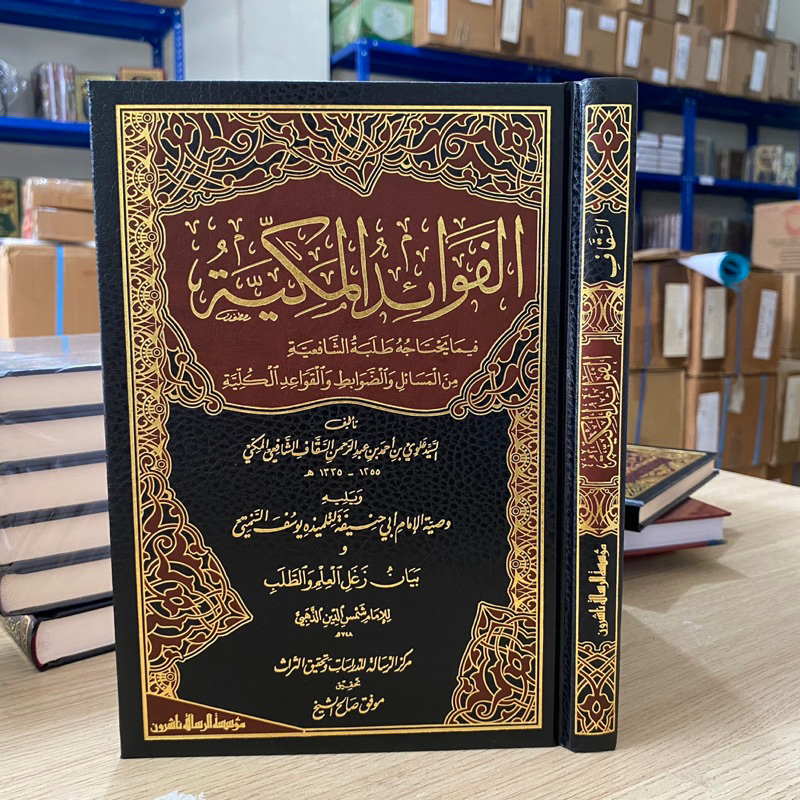 الفَوَائِدُ المَكِّيَّةُ
فيمَا يَحْتَاجُهُ طَلَبَةُ الشَّافِعِيَّةِ
مِنَ المَسَائِلِ وَالضَّوَابِطِ وَالقَوَاعِدِ الْكُلِّيَّةِ
تأليف
السَّيِّد علوي بن أحمد بن عبد الرحمن السَّقَّاف الشَّافعي المكّي
١٢٥٥ - ١٣٣٥ هـ
وَيَلِيهِ
وصيّة الإمام أبي حنيفة لتلميذه يوسُف السَّمْتي
و
بَيَانُ زَغَلِ العِلْمِ وَالطَّلَبِ
للإمام شمس الدّين الذّهبي
٧٤٨هـ
مركز الرسالة للدراسات وتحقيق التراث
تحقيق
موفق صالح الشيخ
مؤسسة الرسالة ناشرون
السَّقَّافِ
الفَوَائِدُ المَكِّيَّةُ
مؤسسة الرسالة ناشرون